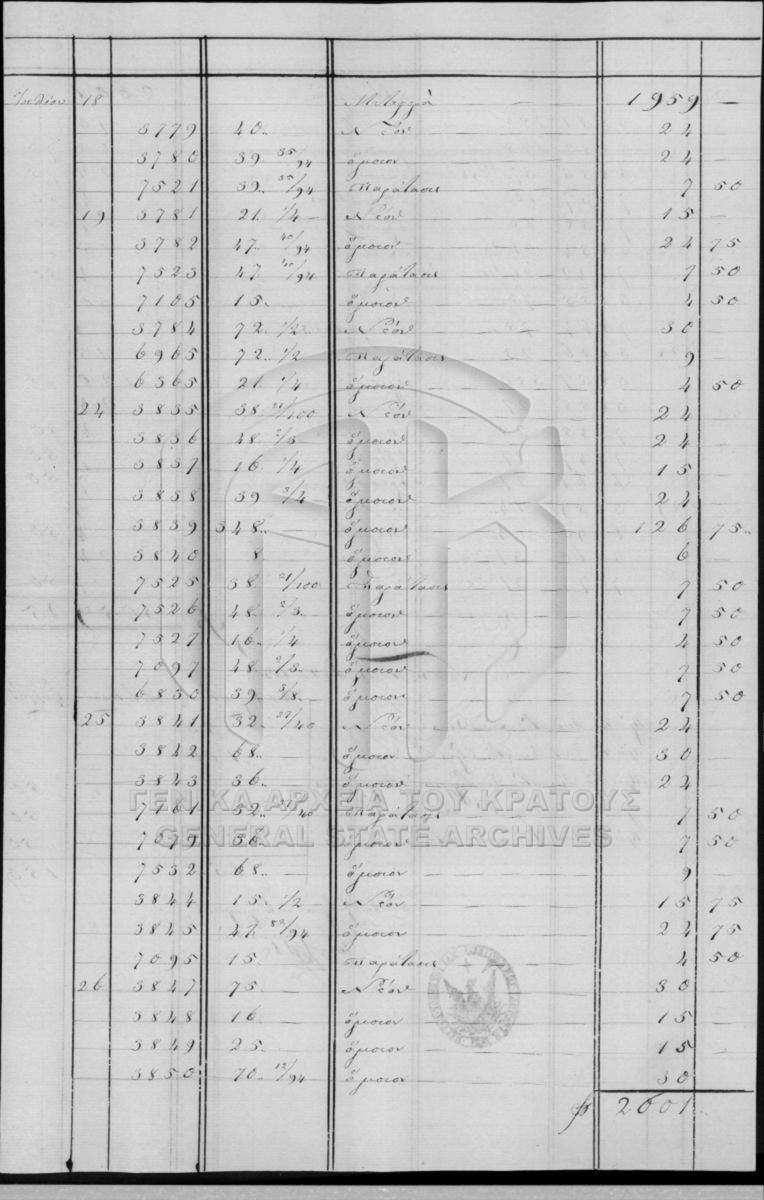 Ἰουλίου 18 Μεταφορὰ 1959 —
3779 40 .. Νέον 24
3780 39 35/94 ὅμοιον 24
7521 39 .. 35/94 Παράτασις 7 50
19 3781 21 1/4 Νέον 15
3782 47 .. 40/94 ὅμοιον 24 75
7523 47 40/94 Παράτασις 7 50
7105 15 .. ὅμοιον 4 50
3784 72 .. 1/2 Νέον 30
6965 72 .. 1/2 Παράτασις 9
6365 21 1/4 ὅμοιον 4 50
24 3835 38 21/100 Νέον 24
3836 48 2/3 ὅμοιον 24
3837 16 1/4 ὅμοιον 15
3838 39 3/4 ὅμοιον 24
3839 348 .. ὅμοιον 126 75 ..
3840 8 ὅμοιον 6
7525 38 21/100 Παράτασις 7 50
7526 48 2/3 ὅμοιον 7 50
7527 16 .. 1/4 ὅμοιον 4 50
7097 48 2/3 ὅμοιον 7 50
6830 39 .. 3/8 ὅμοιον 7 50
25 3841 32 .. 37/40 Νέον 24
3842 68 .. ὅμοιον 30
3843 36 .. ὅμοιον 24
7101 32 .. Παράτασις 7 50
7079 36 .. ὅμοιον 7 50
7532 68 .. ὅμοιον 9
3844 15 .. 1/2 Νέον 15 75
3845 47 .. 82/94 ὅμοιον 24 75
7095 15 .. Παράτασις 4 50
26 3847 75 .. Νέον 30
3848 16 ὅμοιον 15
3849 25 .. ὅμοιον 15
3850 70 .. 12/94 ὅμοιον 30
2601 ..
ΓΕΝΙΚΑ ΑΡΧΕΙΑ ΤΟΥ ΚΡΑΤΟΥΣ
GENERAL STATE ARCHIVES